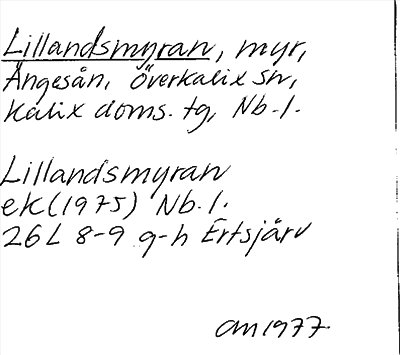 Lillandsmyran, myr,
Ängesån, Överkalix sn,
Kalix doms. tg, Nb. l.
Lillandsmyran
ek (1975) Nb. l.
26L 8-9 g-h Ertsjärv
am 1977.